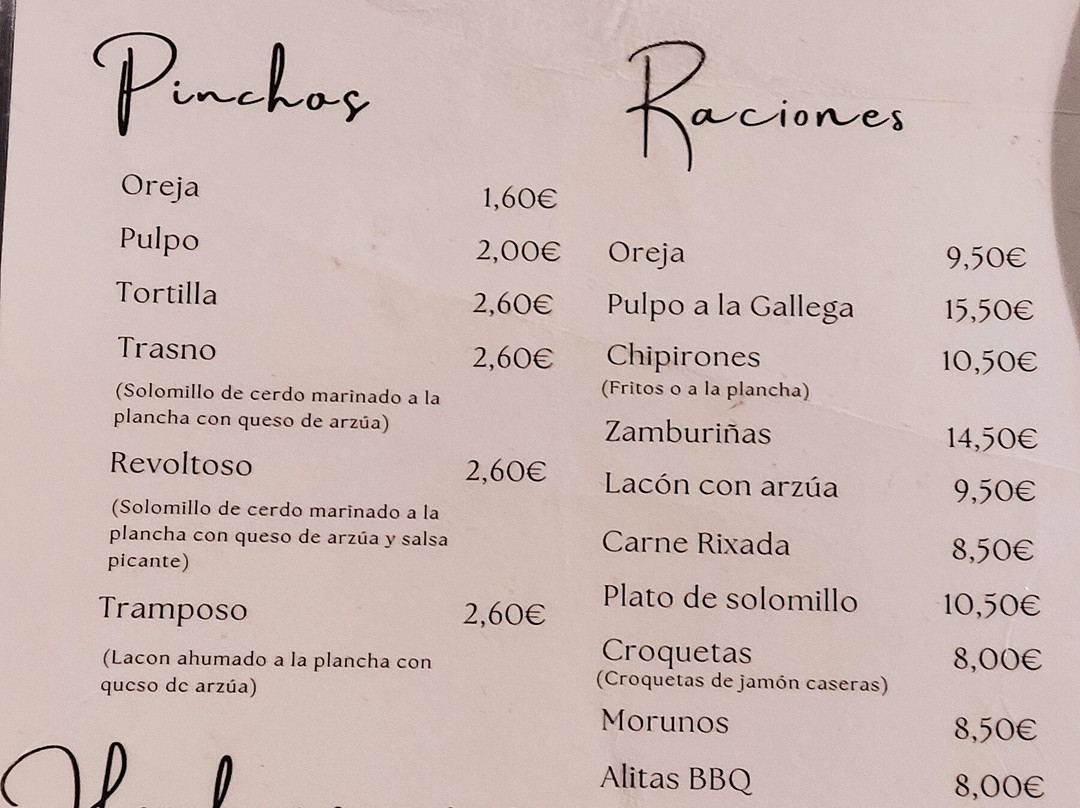 Pinchos
Oreja 1,60€
Pulpo 2,00€
Tortilla 2,60€
Trasno 2,60€
(Solomillo de cerdo marinado a la
plancha con queso de arzúa)
Revoltoso 2,60€
(Solomillo de cerdo marinado a la
plancha con queso de arzúa y salsa
picante)
Tramposo 2,60€
(Lacon ahumado a la plancha con
queso de arzúa)
Raciones
Oreja 9,50€
Pulpo a la Gallega 15,50€
Chipirones 10,50€
(Fritos o a la plancha)
Zamburiñas 14,50€
Lacón con arzúa 9,50€
Carne Rixada 8,50€
Plato de solomillo 10,50€
Croquetas 8,00€
(Croquetas de jamón caseras)
Morunos 8,50€
Alitas BBQ 8,00€